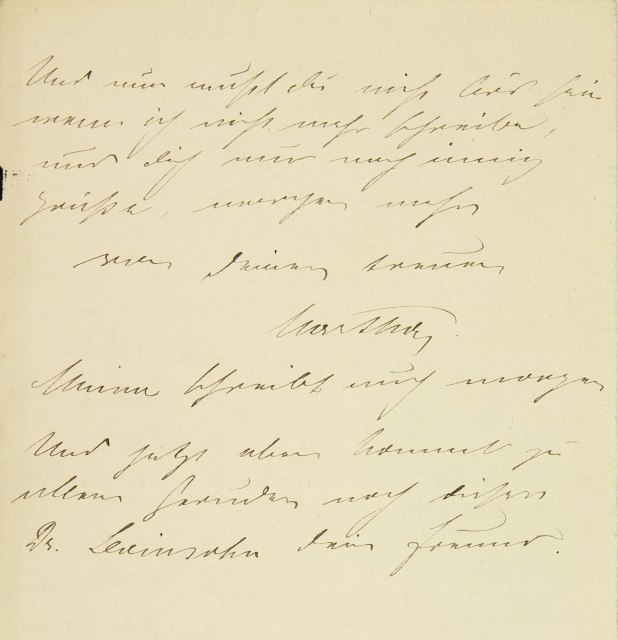 Und nun mußt du nicht bös sein
wenn ich nicht mehr schreibe,
und dich nur noch innig
grüße, morgen mehr
von deiner treuen
Martha
Minna schreibt auch morgen
Und jetzt eben kommt zu
allen Freuden noch dieser
Dr. Levinsohn dein Freund.